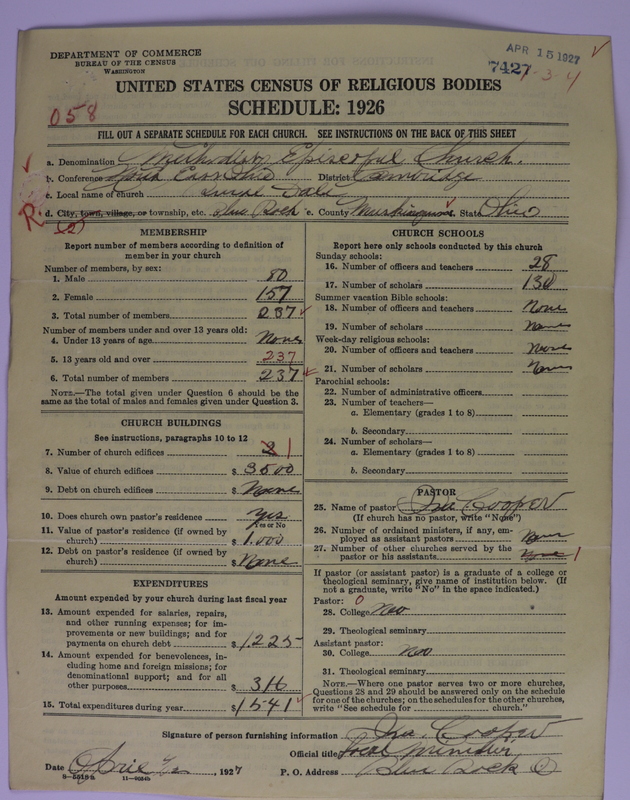 DEPARTMENT OF COMMERCE
BUREAU OF THE CENSUS
WASHINGTON
APR 15 1927
7427 1-3-4
UNITED STATES CENSUS OF RELIGIOUS BODIES
SCHEDULE: 1926
058
FILL OUT A SEPARATE SCHEDULE FOR EACH CHURCH. SEE INSTRUCTIONS ON THE BACK OF THIS SHEET
a. Denomination Methodist Episcopal Church.
b. Conference North East Ohio District Cambridge
c. Local name of church Dale
d. City, town, village, or township, etc. Blue Rock e. County Muskingum State Ohio
R
MEMBERSHIP
Report number of members according to definition of member in your church
Number of members, by sex:
1. Male 80
2. Female 157
3. Total number of members 237
Number of members under and over 13 years old:
4. Under 13 years of age None
5. 13 years old and over 237
6. Total number of members 237
NOTE.—The total given under Question 6 should be the same as the total of males and females given under Question 3.
CHURCH BUILDINGS
See instructions, paragraphs 10 to 12
7. Number of church edifices 2 1
8. Value of church edifices $ 3500
9. Debt on church edifices $ None
10. Does church own pastor's residence Yes
Yes or No
11. Value of pastor's residence (if owned by church) $ 1.000
12. Debt on pastor's residence (if owned by church) $ None
EXPENDITURES
Amount expended by your church during last fiscal year
13. Amount expended for salaries, repairs, and other running expenses; for improvements or new buildings; and for payments on church debt $ 1225
14. Amount expended for benevolences, including home and foreign missions; for denominational support; and for all other purposes $ 316
15. Total expenditures during year $ 1541
CHURCH SCHOOLS
Report here only schools conducted by this church
Sunday schools:
16. Number of officers and teachers 28
17. Number of scholars 130
Summer vacation Bible schools:
18. Number of officers and teachers None
19. Number of scholars None
Week-day religious schools:
20. Number of officers and teachers None
21. Number of scholars None
Parochial schools:
22. Number of administrative officers
23. Number of teachers—
a. Elementary (grades 1 to 8)
b. Secondary
24. Number of scholars—
a. Elementary (grades 1 to 8)
b. Secondary
PASTOR
25. Name of pastor Ira Cooper
(If church has no pastor, write "None")
26. Number of ordained ministers, if any, employed as assistant pastors None
27. Number of other churches served by the pastor or his assistants None 1
If pastor (or assistant pastor) is a graduate of a college or theological seminary, give name of institution below. (If not a graduate, write "No" in the space indicated.)
Pastor: 0
28. College No
29. Theological seminary
Assistant pastor:
30. College No
31. Theological seminary
NOTE.—Where one pastor serves two or more churches, Questions 28 and 29 should be answered only on the schedule for one of the churches; on the schedules for the other churches, write "See schedule for church."
Signature of person furnishing information Ira Cooper
Official title Local minister
Date April , 1927 P. O. Address Blue Rock O
8—5618 b 11—9564b